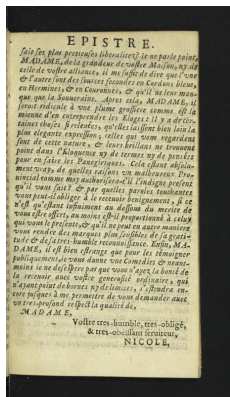 EPISTRE.
fait ses plus pretieuses liberalitez? ie ne parle point,
MADAME, de la grandeur de vostre Maison, ny de
celle de vostre alliance, il me suffit de dire que l'vne
& l'autre sont des sources fecondes en Cordons bleus,
en Hermines, & en Couronnes, & qu'il ne leur man-
que que la souueraine. Apres cela, MADAME, il
seroit ridicule à vne plume grossiere comme est la
mienne d'en entreprendre les Eloges: il y a de cer-
taines choses si releuées, qu'elles laissent bien loin la
plus elegante expression; celles qui vous regardent
sont de cette nature, & leurs brillans ne trouuent
point dans l'Eloquence ny de termes ny de pensées
pour en faire les Panegiriques. Cela estant absolu-
ment vray, de quelles raisons vn malheureux Pro-
uincial comme moy authorisera-t'il l'indigne present
qu'il vous fait? & par quelles paroles touchantes
vous peut-il obliger à le receuoir benignement, si ce
n'est qu'estant infiniment au dessous du merite de
vous estre offert, au moins est-il proportionné à celuy
qui vous le presente, & qu'il ne peut en autre maniere
vous rendre des marques plus sensibles de sa grati-
tude & de sa tres-humble reconnoissance. Enfin, MA-
DAME, il est bien estrange que pour les témoigner
publiquement, ie vous donne vne Comedie: & neant-
moins ie ne desespere pas que vous n'ayez la bonté de
la receuoir auec vostre generosité ordinaire, qui
n'ayant point de bornes ny de limites, s'estendra en-
core iusques à me permettre de vous demander auec
vn tres-profond respect la qualité de,
MADAME,
Vostre tres-humble, tres-obligé,
& tres-obeissant seruiteur,
NICOLE.